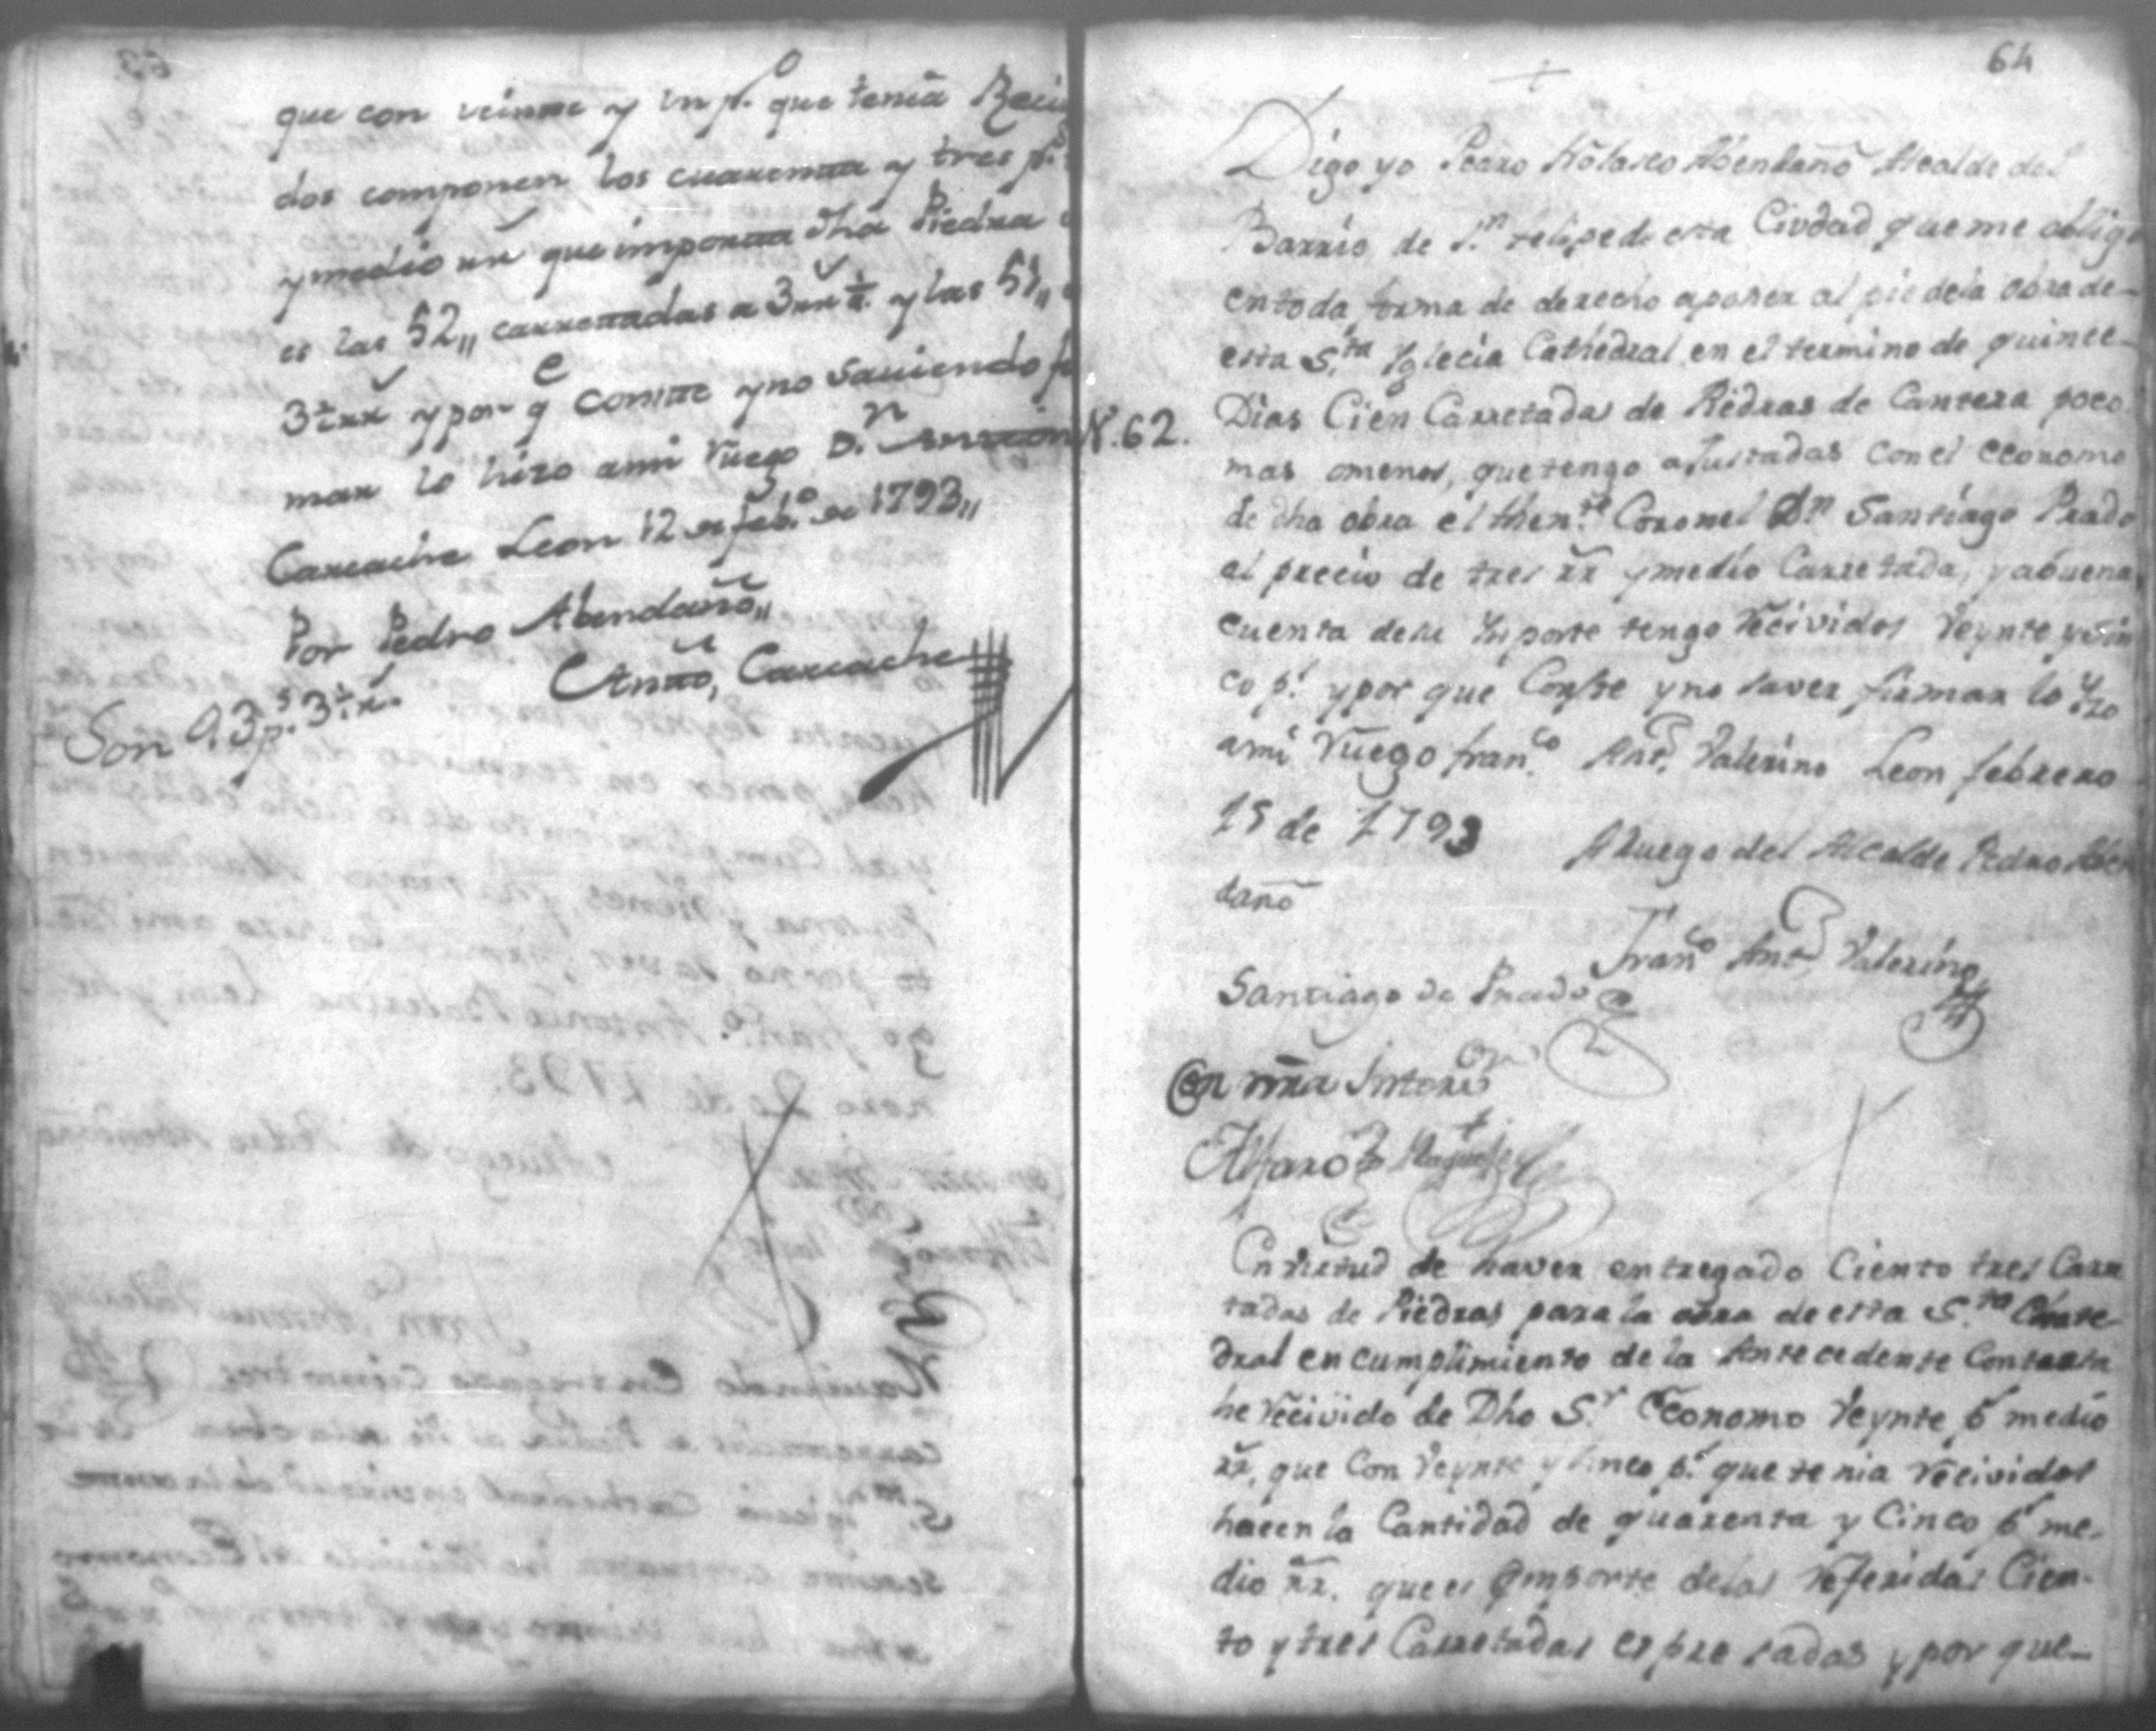 que con veinte y un p.s que tenia Reciui
dos componen los cuarenta y tres p.s
y medio rr que importa dha Piedra
es las 52,, carretadas a 3 rr ½ y las 51,,
3 ½ rr y por q.e conste y no sauiendo fir
mar lo hizo ami Ruego D.n
Carcache Leon 12 de feb.o de 1793,,
Por Pedro Abendaño,,
Anto, Carcache
Son 43 p.s 3 ½ r.s
64
Digo yo Pedro Nolasco Abendaño Alcalde del
Barrio de S.n Felipe de esta Ciudad que me obligo
en toda forma de derecho aponer al pie de la obra de
esta S.ta Yglecia Cathedral en el termino de quince
N. 62. Dias Cien Carretadas de Piedras de Cantera poco
mas omenos, que tengo ajustadas con el economo
de dha obra el then.te Coronel Dn Santiago Prado
al precio de tres rr y medio Carretada, y abuena
cuenta de su Ymporte tengo recividos Veynte y sin
co p.s y por que Conste y no saver firmar lo Yzo
ami Ruego fran.co Ant.o Valerino Leon febrero
15 de 1793 A Ruego del Alcalde Pedro Aben
daño
Franco Anto Valerino
Santiago de Prado
Con mia Interbon
Alfaro
En virtud de haver entregado Ciento tres Carre
tadas de Piedras para la obra de esta S.ta Cate
dral en cumplimiento de la Antecedente Contrata
he recivido de Dho S.r Economo Veynte ps medio
rr, que Con Veynte y sinco p.s que tenia recividos
hacen la Cantidad de quarenta y Cinco ps me-
dio rr. que es Ymporte de las referidas Cien-
to y tres Carretadas espresadas y por que